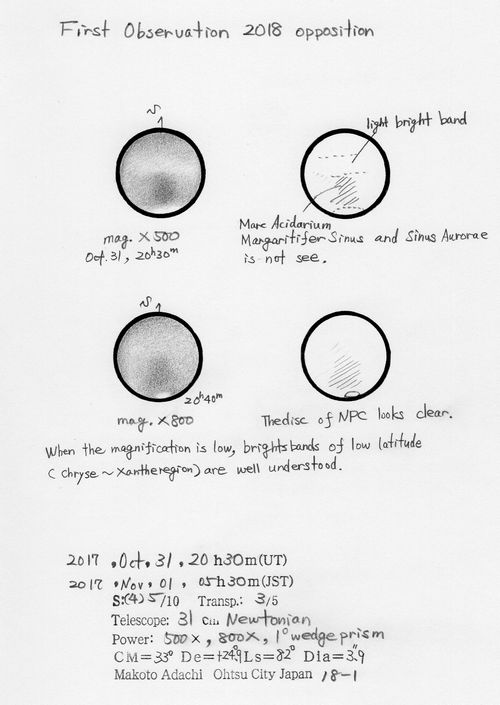 First Observation 2018 opposition
S
light bright band
mag. ×500
Oct. 31, 20h30m
Mare Acidarium
Margaritifer Sinus and Sinus Aurorae
is not see.
S
20h40m
mag. ×800
The disc of NPC looks clear.
When the magnification is low, brights bands of low latitude
(Chryse ~ Xanthe region) are well understood.
2017 , Oct, 31 , 20 h30m(UT)
2017 , Nov, 01 , 05h30m(JST)
S:(4) 5/10 Transp.: 3/5
Telescope: 31 cm Newtonian
Power: 500×, 800×, 1° wedge prism
CM=33° De=+24.9 Ls=82° Dia=3".9
Makoto Adachi Ohtsu City Japan 18-1